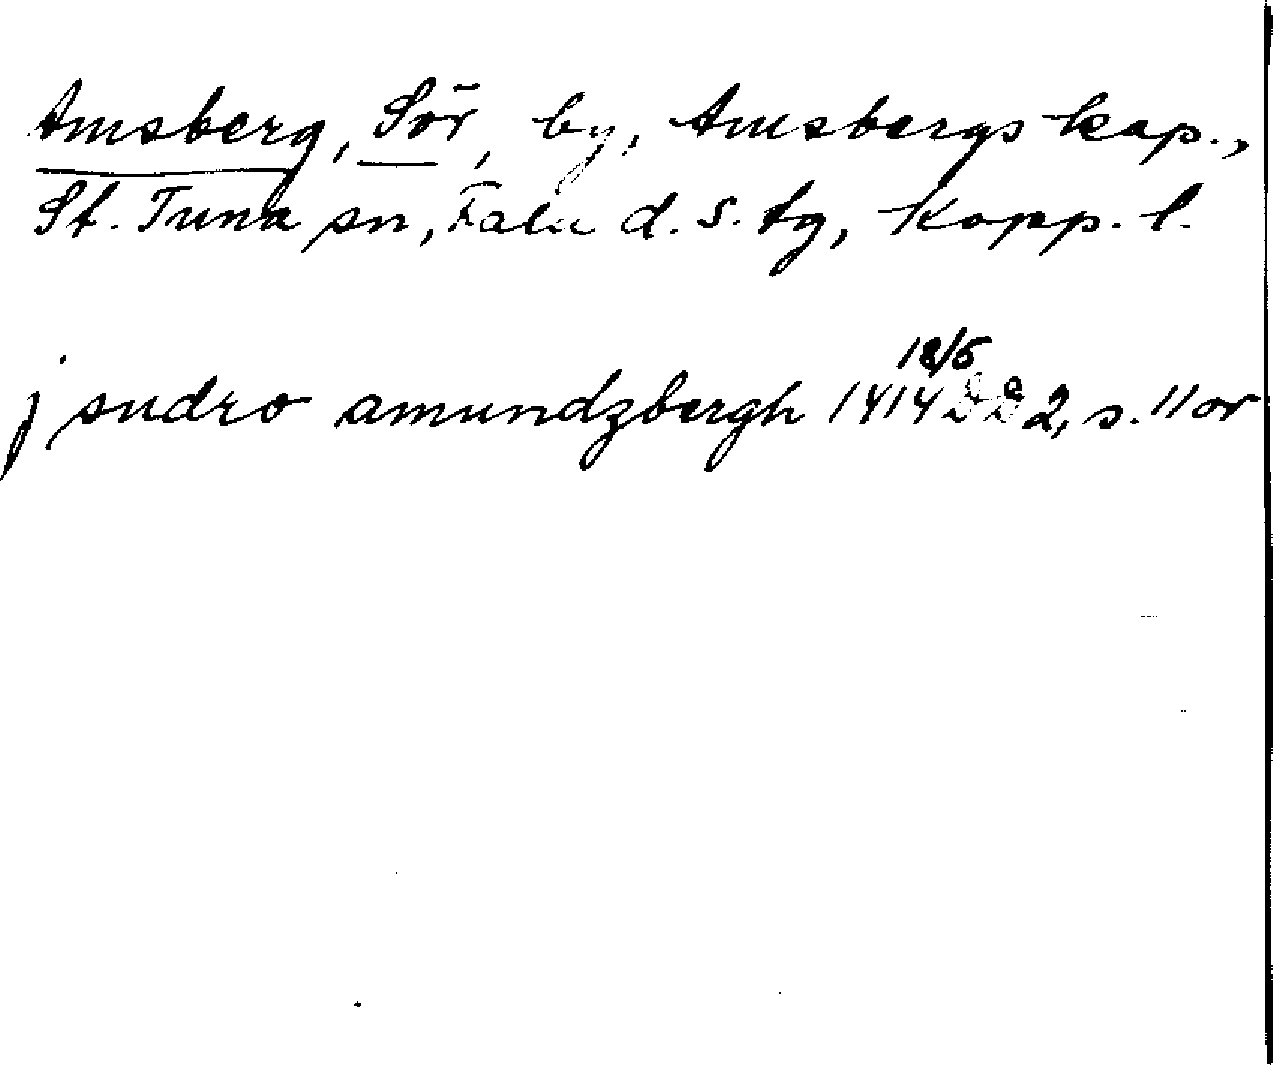 Amsberg, Sör, by, Amsbergs kap.,
St. Tuna sn, Falu d. s. tg, Kopp. l.
18/5
j sudro amundzbergh 1414 DD 2, s. 11 or